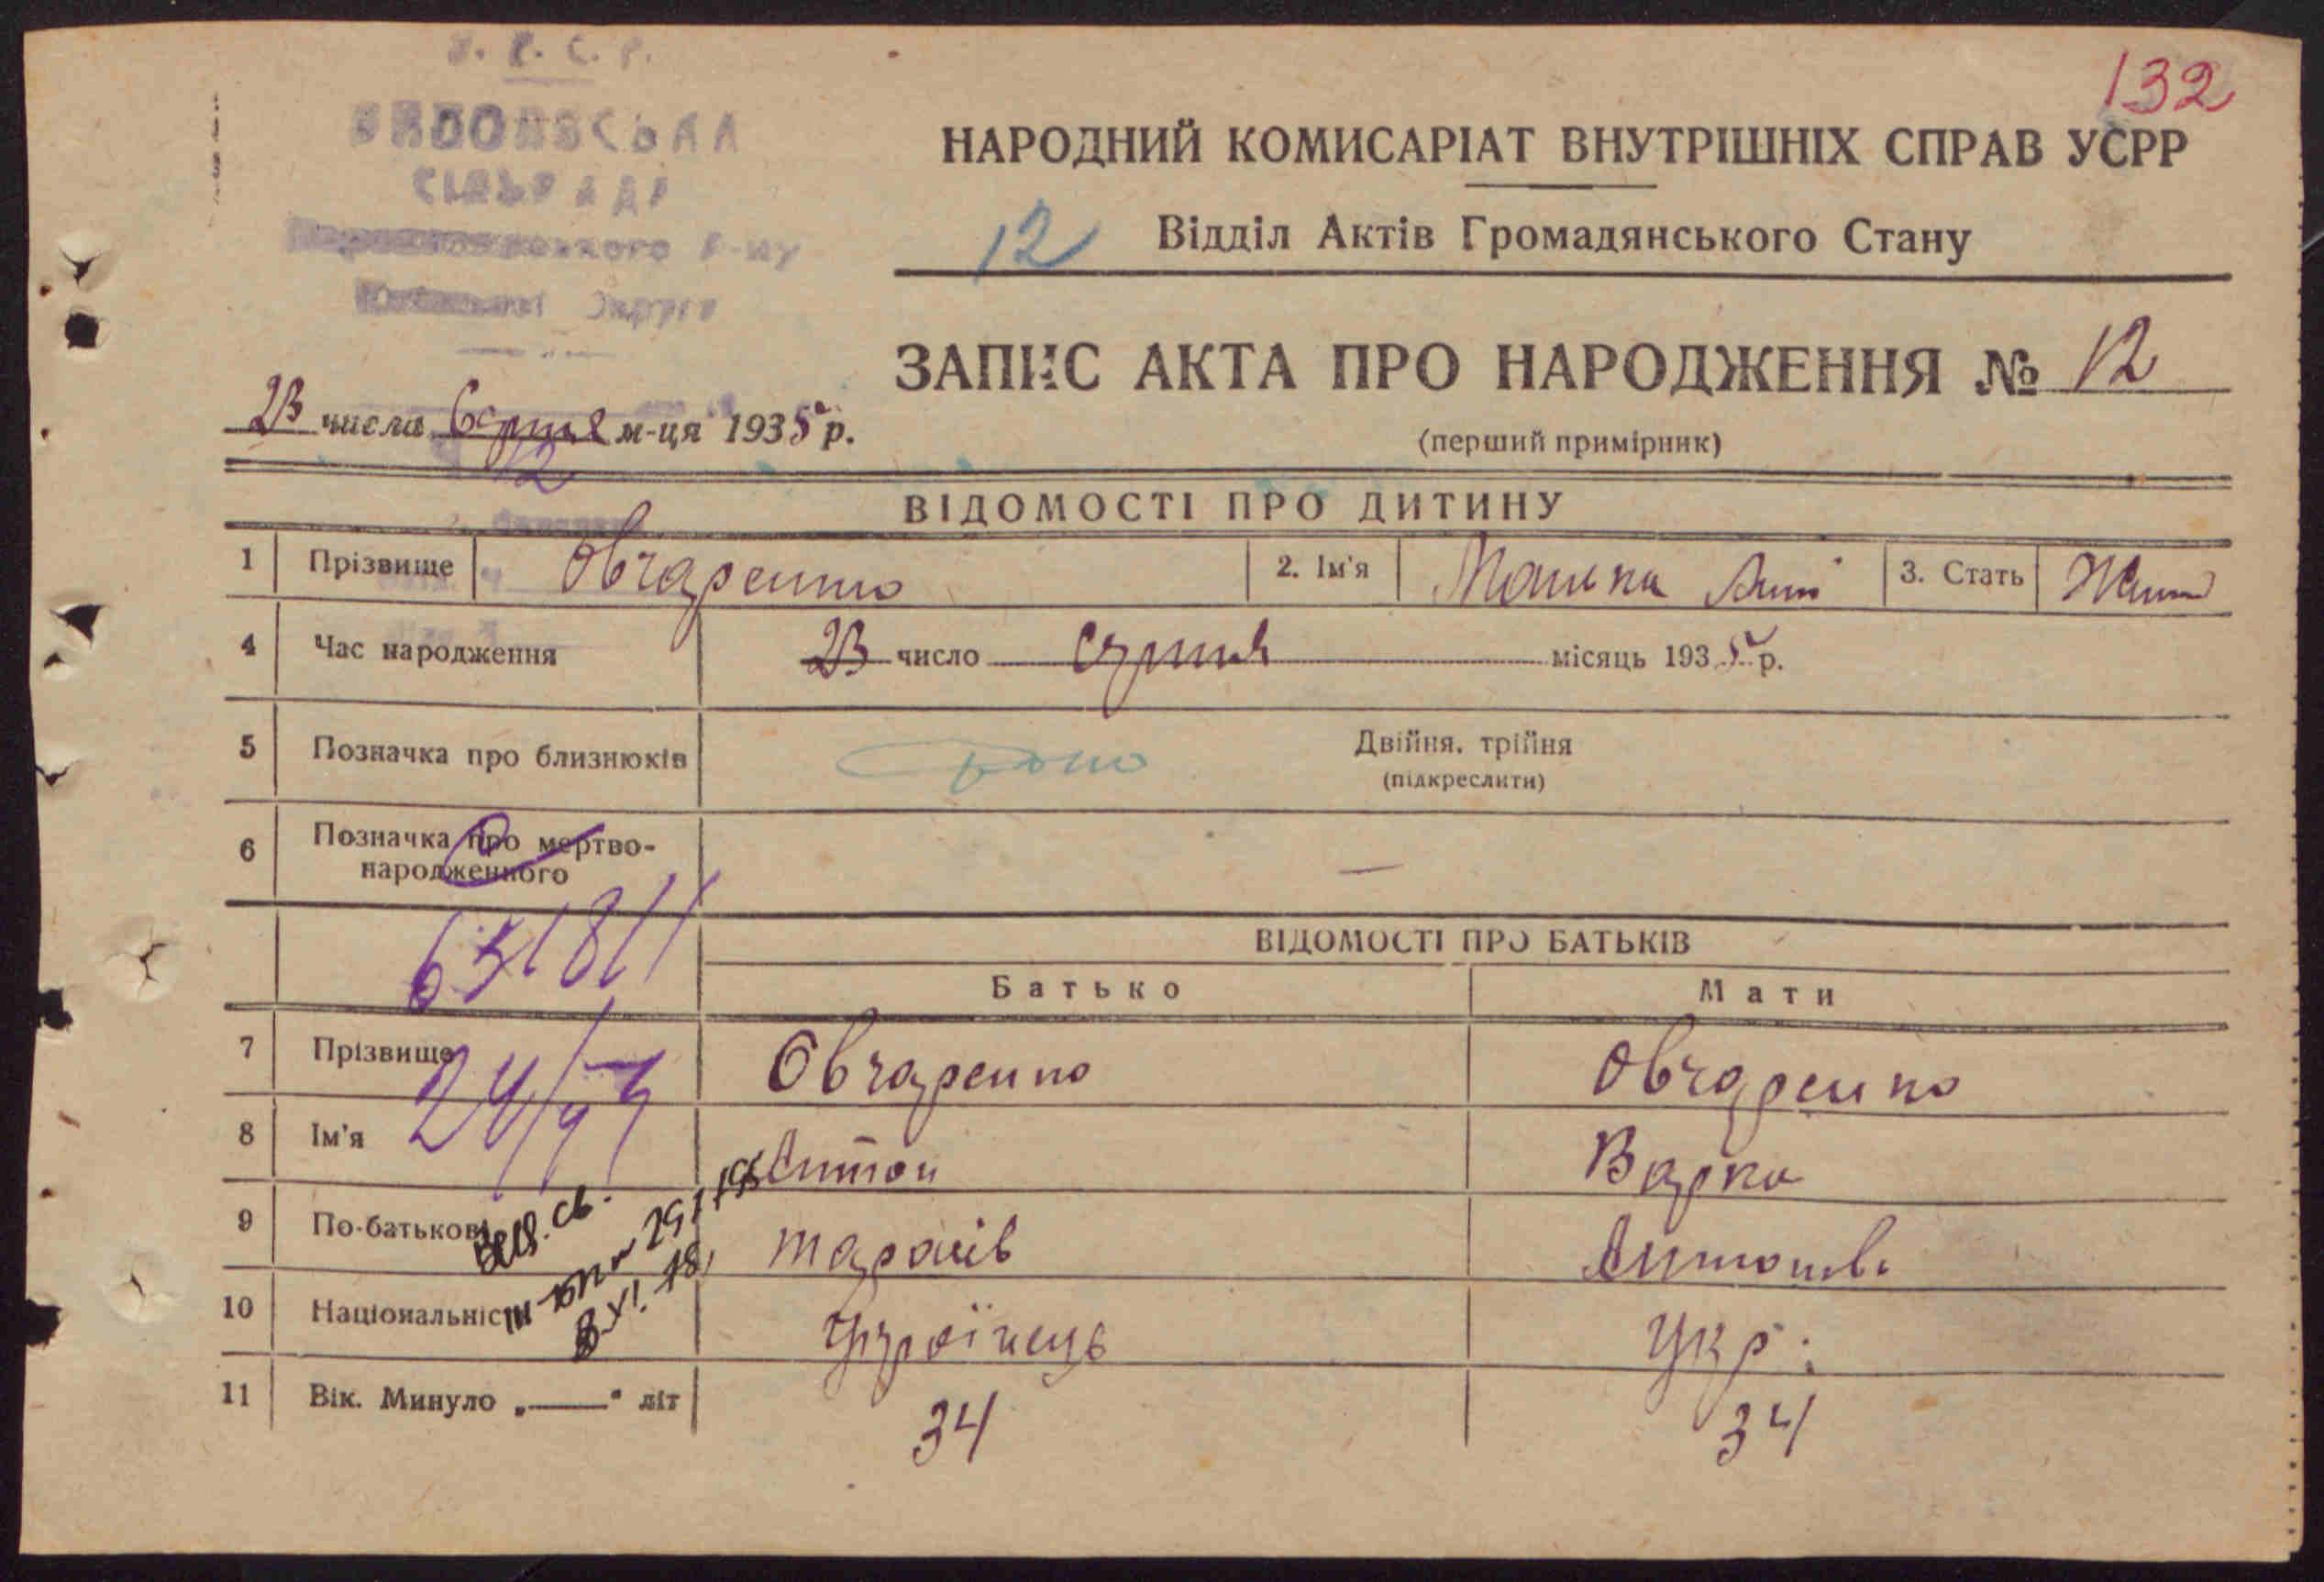 132
НАРОДНИЙ КОМИСАРІАТ ВНУТРІШНІХ СПРАВ УСРР
12 Відділ Актів Громадянського Стану
ЗАПИС АКТА ПРО НАРОДЖЕННЯ № 12
(перший примірник)
У. Р. С. Р.
СІЛЬРАДА
Р-ну
Округи
23 числа Серпня м-ця 1935 р.
12
ВІДОМОСТІ ПРО ДИТИНУ
1 Прізвище Овчаренко 2. Ім'я 3. Стать Жіноч
4 Час народження 23 число серпня місяць 1935 р.
5 Позначка про близнюків Двійня, трійня
(підкреслити)
6 Позначка про мертво-
народженого —
ВІДОМОСТІ ПРО БАТЬКІВ
Батько Мати
7 Прізвище Овчаренко Овчаренко
8 Ім'я Антон Варка
9 По-батькові Тарасів Антонів
10 Національність Українець Укр.
11 Вік. Минуло „——“ літ 34 34